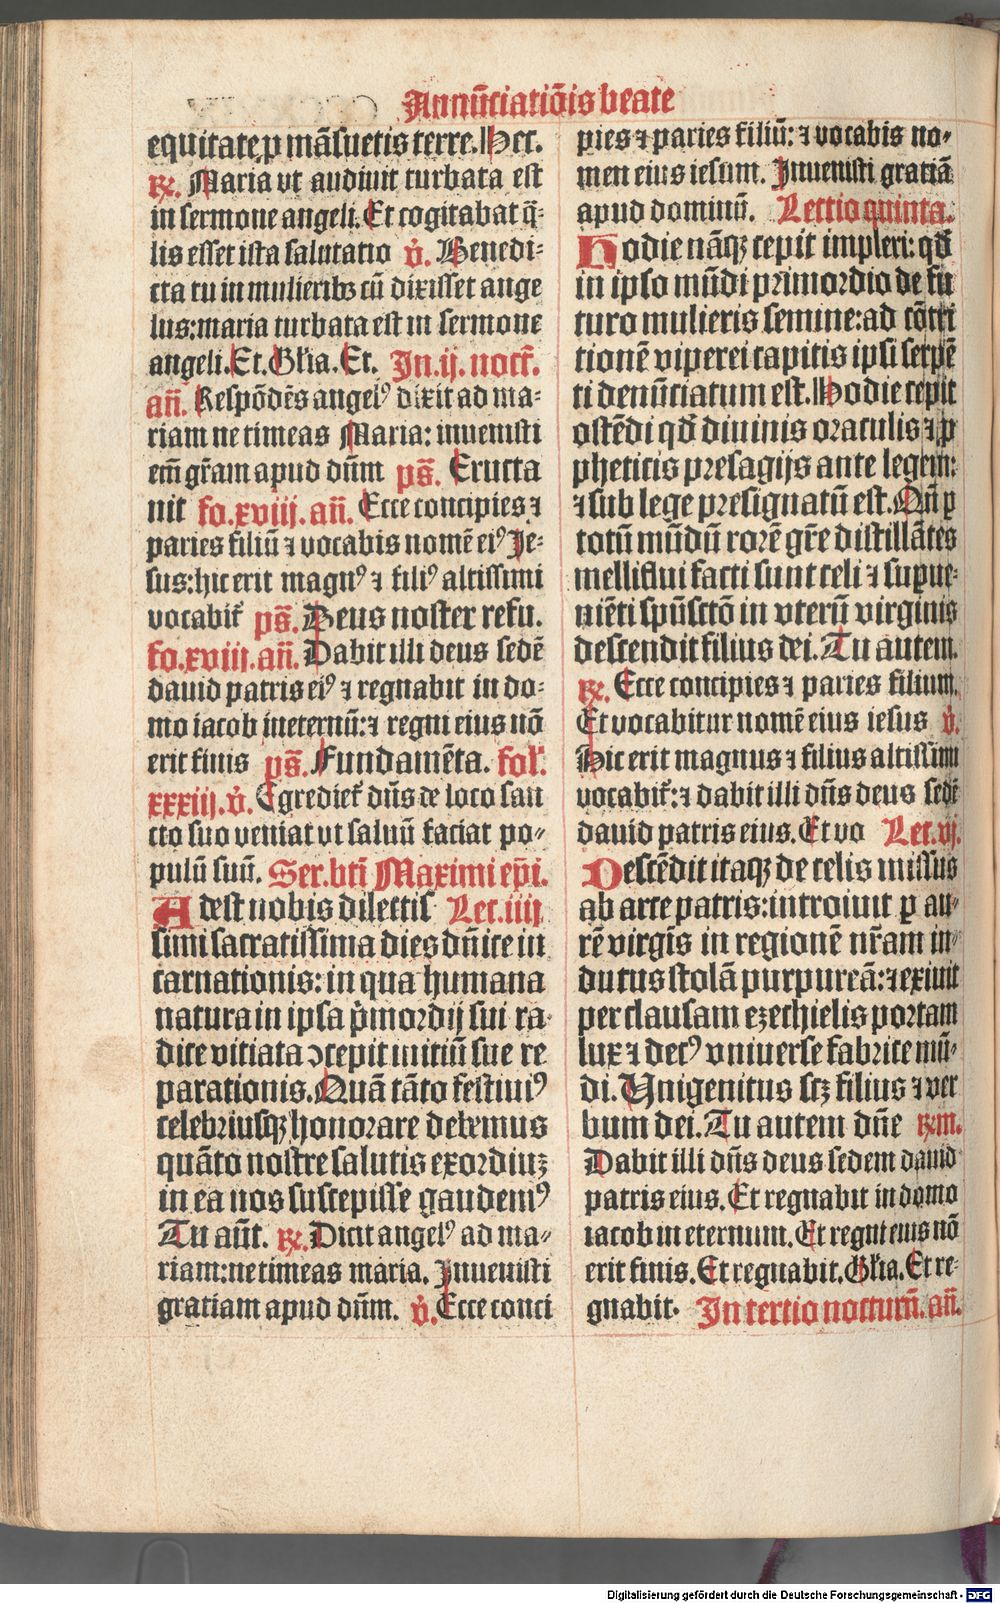 Annu̅ciatio̅is beate
equitate ꝓ ma̅suetis terre. Hec.
℟. Maria vt audiuit turbata est
in sermone angeli. Et cogitabat q̅-
lis esset ista salutatio v̇. Benedi-
cta tu in mulieribꝰ cu̅ dixisset ange
lus: maria turbata est in sermone
angeli. Et. Gl'ia. Et. In .ij. noct̅.
an̅. Respo̅de̅s angelꝰ dixit ad ma-
riam ne timeas Maria: inuenisti
em̅ gr̅am apud dn̅m ps̅. Eructa
uit fo. xviij. an̅. Ecce concipies ⁊
paries filiu̅ ⁊ vocabis nome̅ eiꝰ Je-
sus: hic erit magnꝰ ⁊ filiꝰ altissimi
vocabit᷑ ps̅. Deus noster refu.
fo. xviij. an̅. Dabit illi deus sede̅
dauid patris eiꝰ ⁊ regnabit in do-
mo iacob ineternu̅: ⁊ regni eius no̅
erit finis ps̅. Fundame̅ta. fol'.
xxxiij. v̇. Egrediet᷑ dn̅s de loco san
cto suo veniat vt saluu̅ faciat po-
pulu̅ suu̅. Ser. bt̅i Maximi ep̅i.
Adest nobis dilectis Lec. iiij
simi sacratissima dies dn̅ice in
carnationis: in qua humana
natura in ipsa p̍mordij sui ra-
dice vitiata ↄcepit initiu̅ sue re
parationis. Qua̅ ta̅to festiuiꝰ
celebriusqꝫ honorare debemus
qua̅to nostre salutis exordiuꝫ
in ea nos suscepisse gaudemꝰ
Tu aut̅. ℟. Dicit angelꝰ ad ma-
riam: ne timeas maria. Inuenisti
gratiam apud dn̅m. v̇. Ecce conci
pies ⁊ paries filiu̅: ⁊ vocabis no-
men eius iesum. Inuenisti gratia̅
apud dominu̅. Lectio quinta.
Hodie na̅qꝫ cepit impleri: qd̅
in ipso mu̅di primordio de fu
turo mulieris semine: ad co̅tri
tione̅ viperei capitis ipsi serpe̅
ti denu̅ciatum est. Hodie cepit
oste̅di qd̅ diuinis oraculis ⁊ ꝓ
pheticis presagijs ante legem:
⁊ sub lege presignatu̅ est. Qn̅ ꝑ
totu̅ mu̅du̅ rore̅ gr̅e distilla̅tes
melliflui facti sunt celi ⁊ suꝑue-
nie̅ti spu̅scto̅ in vteru̅ virginis
descendit filius dei. Tu autem.
℟. Ecce concipies ⁊ paries filium.
Et vocabitur nome̅ eius iesus v̇.
Hic erit magnus ⁊ filius altissimi
vocabit᷑: ⁊ dabit illi dn̅s deus sede̅
dauid patris eius. Et vo Lec. vj.
Desce̅dit itaqꝫ de celis missus
ab arce patris: introiuit ꝑ au-
re̅ virgi̅s in regione̅ nr̅am in-
dutus stola̅ purpurea̅: ⁊ exiuit
per clausam ezechielis portam
lux ⁊ decꝰ vniuerse fabrice mu̅-
di. Unigenitus scꝫ filius ⁊ ver
bum dei. Tu autem dn̅e ℟. m.
Dabit illi dn̅s deus sedem dauid
patris eius. Et regnabit in domo
iacob in eternum. Et regni eius no̅
erit finis. Et regnabit. Gl'ia. Et re-
gnabit. In tertio nocturn̅. an̅.
Digitalisierung gefördert durch die Deutsche Forschungsgemeinschaft - DFG